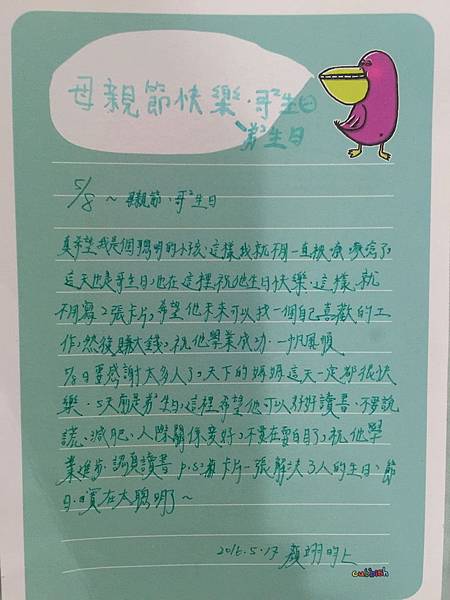 母親節快樂.哥²生日
弟²生日
5/8 ~ 母親節、哥²生日
真希望我是個聰明的小孩,這樣我就不用一直被唸,唸唸了,
這天也是哥生日,也在這裡祝他生日快樂,這樣就
不用寫2張卡片,希望他未來可以找一個自己喜歡的工
作,然後賺大錢,祝他學業成功、一帆風順
5/8日要感謝太多人了,天下的媽媽這天一定都很快
樂.5天前是弟²生日,這裡希望他可以好好讀書、不要說
謊、減肥、人際關係變好,不要在耍白目了,祝他學
業進步,認真讀書 p.s:兩卡片一張解決3人的生日、節
日,實在太聰明了~
2016.5.17 顏翊昀上
cubbish